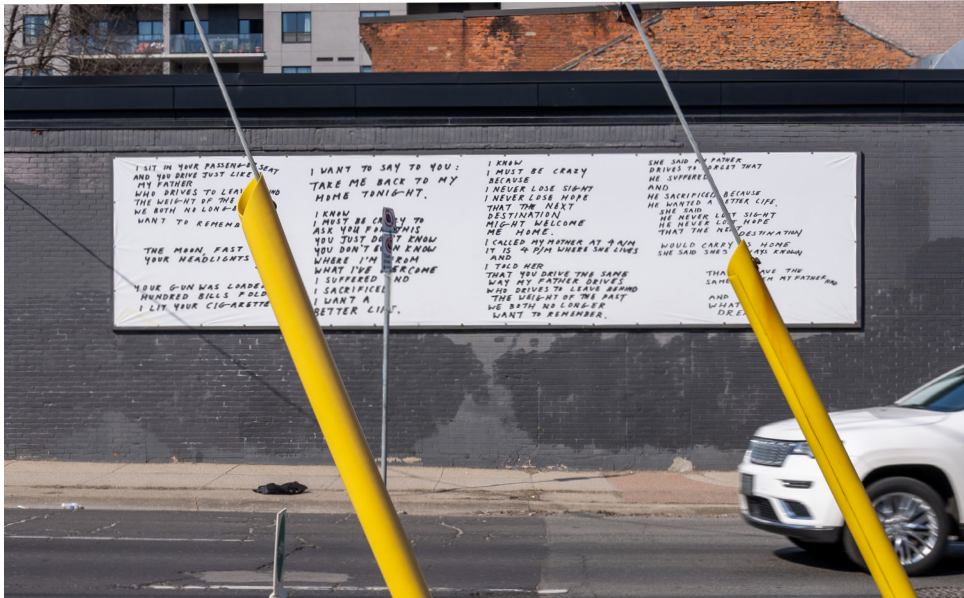 I SIT IN YOUR PASSENGER SEAT
AND YOU DRIVE JUST LIKE
MY FATHER
WHO DRIVES TO LEAVE BEHIND
THE WEIGHT OF THE
WE BOTH NO LONGER
WANT TO REMEMBER
THE MOON, FAST
YOUR HEADLIGHTS
YOUR GUN WAS LOADED
HUNDRED BILLS FOLD
I LIT YOUR CIGARETTE
I WANT TO SAY TO YOU:
TAKE ME BACK TO MY
HOME TONIGHT.
I KNOW
I MUST BE CRAZY TO
ASK YOU FOR THIS
YOU JUST DON'T KNOW
YOU DON'T EVEN KNOW
WHERE I'M FROM
WHAT I'VE OVERCOME
I SUFFERED AND
I SACRIFICED
I WANT A
BETTER LIFE.
I KNOW
I MUST BE CRAZY
BECAUSE
I NEVER LOSE SIGHT
I NEVER LOSE HOPE
THAT THE NEXT
DESTINATION
MIGHT WELCOME
ME HOME.
I CALLED MY MOTHER AT 4 A/M
IT IS 4 P/M WHERE SHE LIVES
AND
I TOLD HER
THAT YOU DRIVE THE SAME
WAY MY FATHER DRIVES
WHO DRIVES TO LEAVE BEHIND
THE WEIGHT OF THE PAST
WE BOTH NO LONGER
WANT TO REMEMBER.
SHE SAID MY FATHER
DRIVES TO FORGET THAT
HE SUFFERED
AND
HE SACRIFICED BECAUSE
HE WANTED A BETTER LIFE.
SHE SAID
HE NEVER LOST SIGHT
HE NEVER LOST HOPE
THAT THE NEXT DESTINATION
WOULD CARRY HOME
SHE SAID SHE'S ALWAYS KNOWN
THAT HAVE THE
SAME MY FATHER HAD
AND
WHAT
DREAM